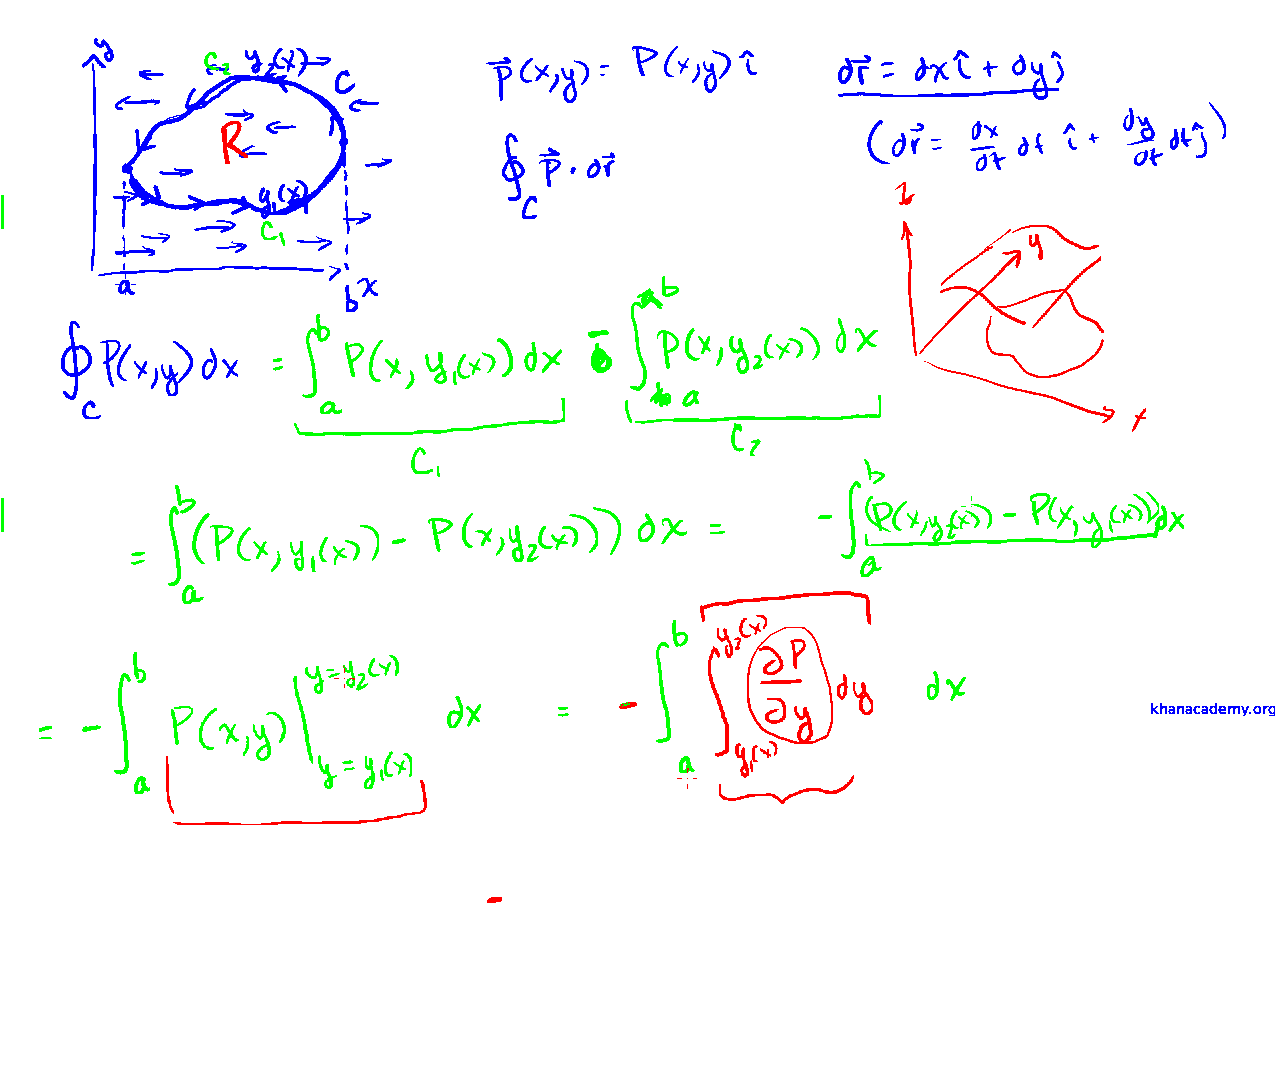 y
C₂ y₂(x)
C
R
y₁(x)
C₁
a b x
p⃗(x,y) = P(x,y) î
∮_C p⃗ · dr⃗
dr⃗ = dx î + dy ĵ
(dr⃗ = dx/dt dt î + dy/dt dt ĵ)
z
y
x
∮_C P(x,y) dx = ∫_a^b P(x, y₁(x)) dx - ∫_a^b P(x, y₂(x)) dx
C₁ C₂
= ∫_a^b (P(x, y₁(x)) - P(x, y₂(x))) dx = - ∫_a^b (P(x, y₂(x)) - P(x, y₁(x))) dx
= - ∫_a^b P(x,y) |_{y = y₁(x)}^{y = y₂(x)} dx = - ∫_a^b ∫_{y₁(x)}^{y₂(x)} ∂P/∂y dy dx
khanacademy.org
-